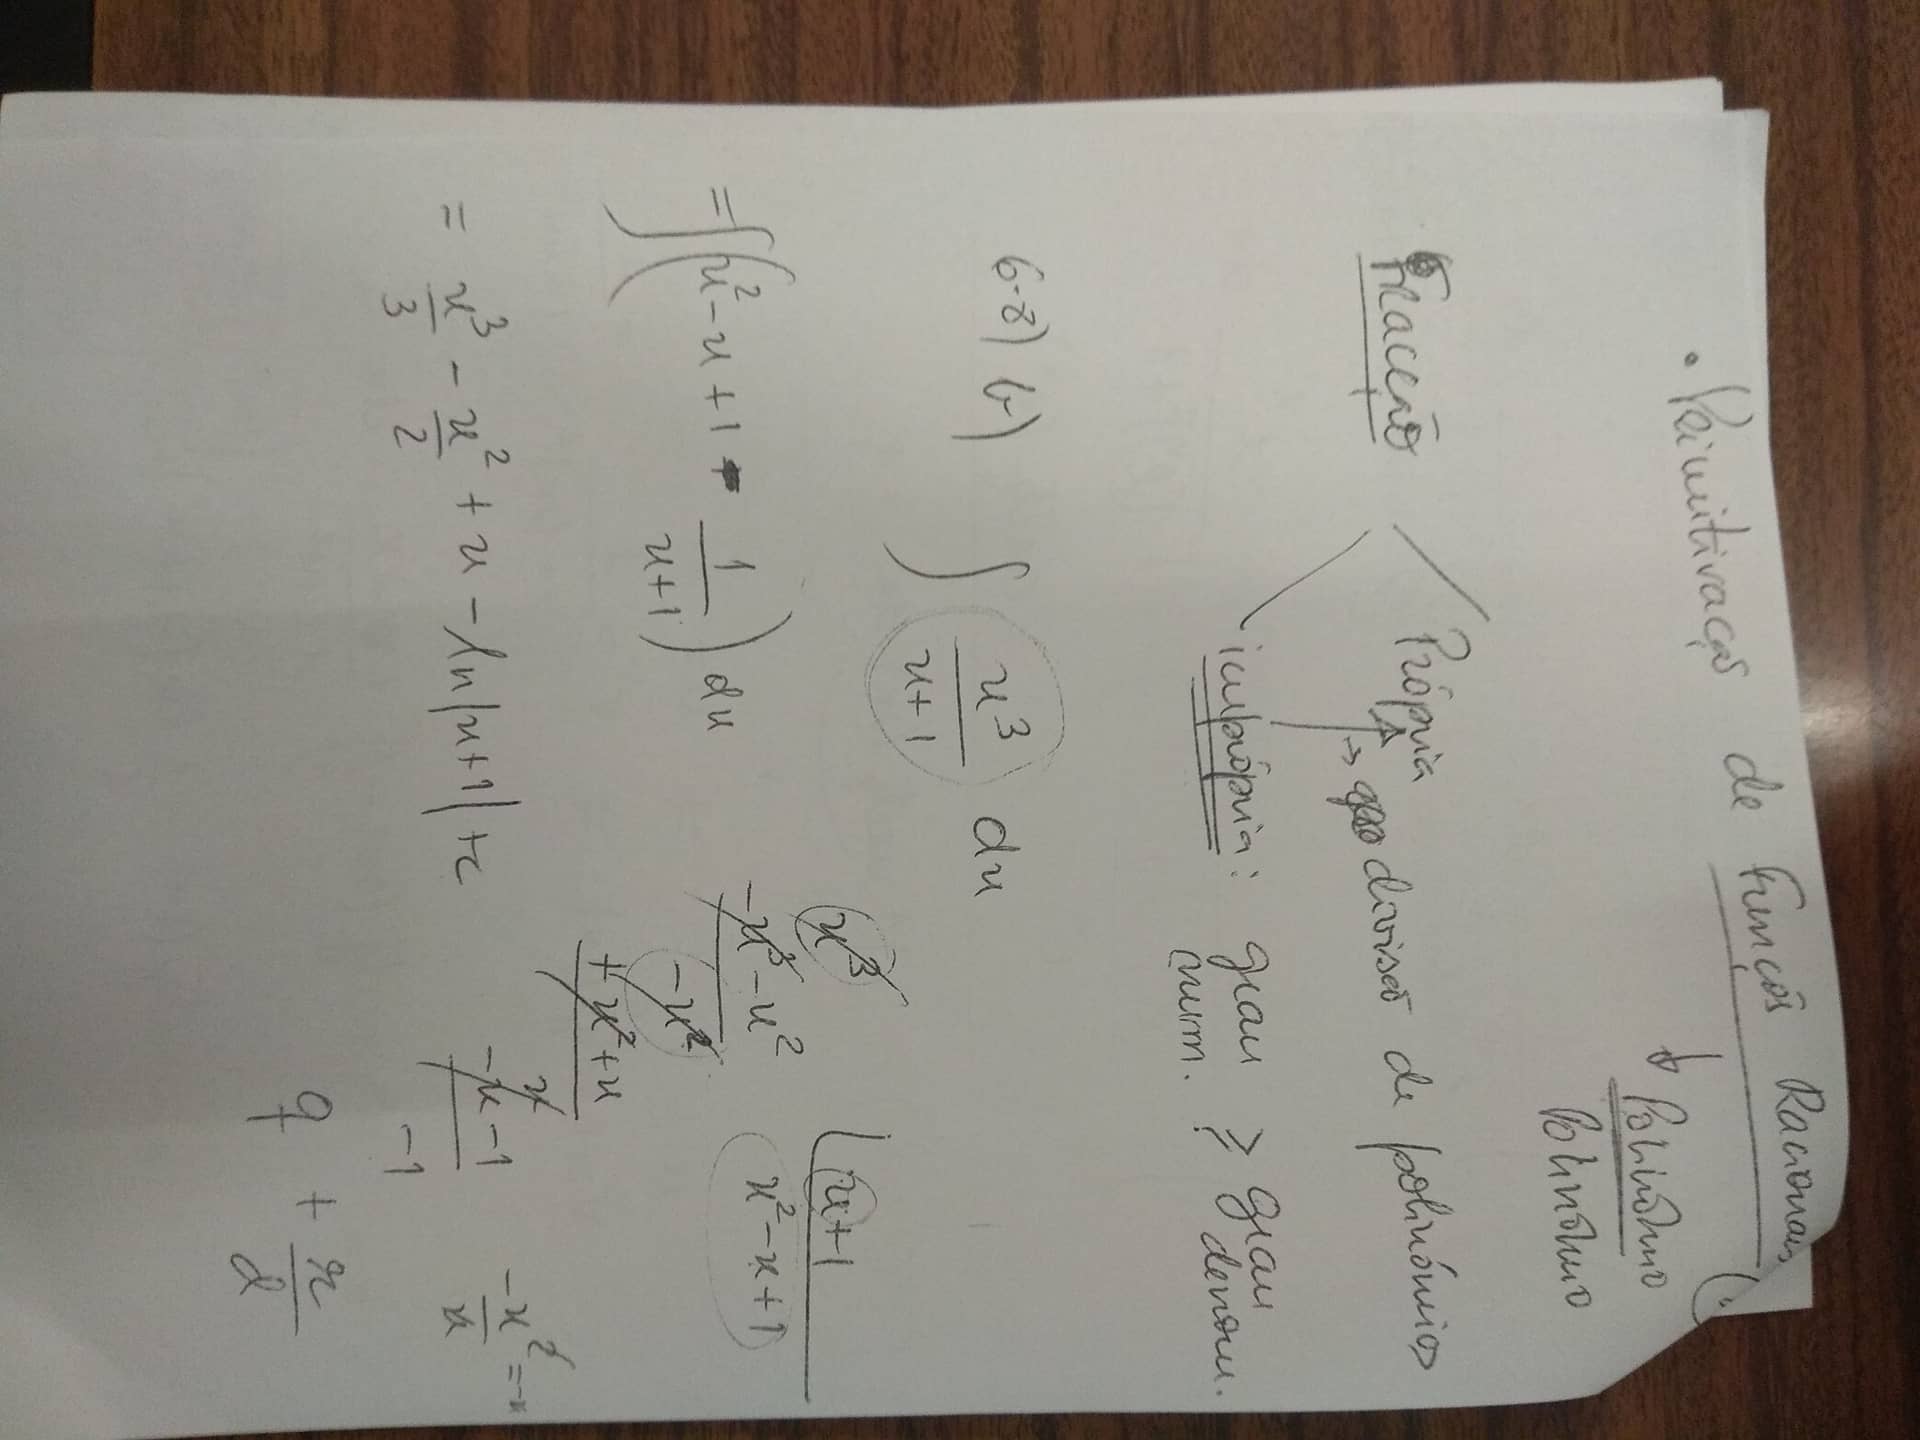 • Primitivação de Funções Racionais
Polinómio
Polinómio
Fracção
Própria
→ divisão de polinómios
imprópria: grau num. ≥ grau denom.
6-8) b) ∫ x³/(x+1) dx
x³ | x+1
-x³-x² x²-x+1
= ∫(x²-x+1 - 1/(x+1)) dx
-x²
+x²+x
x
-x-1 -x²/x = -x
-1
= x³/3 - x²/2 + x - ln|x+1| + c
q + r/d